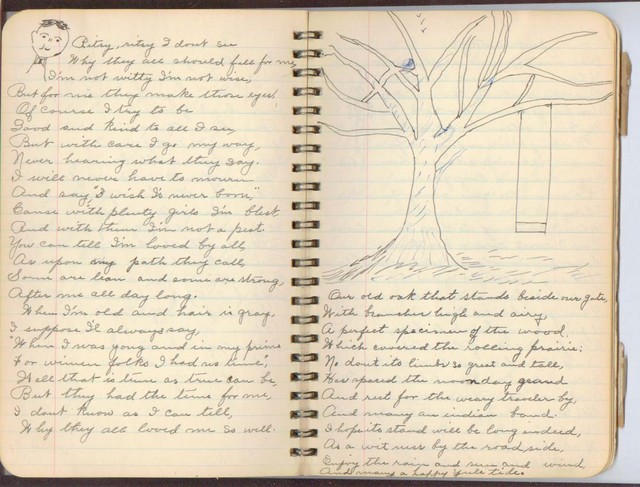 Ritsy, ritsy I dont see
Why they all should fall for me,
I'm not witty I'm not wise,
But for me they make those eyes!
Of course I try to be
Good and kind to all I see,
But with care I go my way,
Never hearing what they say.
I will never have to mourn
And say, "I wish I'd never born,"
Cause with plenty girls I'm blest
And with them I'm not a pest.
You can tell I'm loved by all,
As upon my path they call
Some are lean and some are strong,
After me all day long.
When I'm old and hair is gray,
I suppose I'll always say,
"When I was young and in my prime
For wimen folks I had no time",
Well that is true as true can be,
But they had the time for me,
I dont know as I can tell,
Why they all loved me so well.
Our old oak that stands beside our gate,
With branches heigh and airy,
A perfect specimen of the wood,
Which covered the rolling prairie;
No dout its limbs so great and tall,
Has spaced the noonday
And rest for the weary traveler by,
And many an indian band.
I hope its stand will be long indeed,
As a witness by the road side,
Enjoy the rain and sun and wind
And many a happy yule tide.